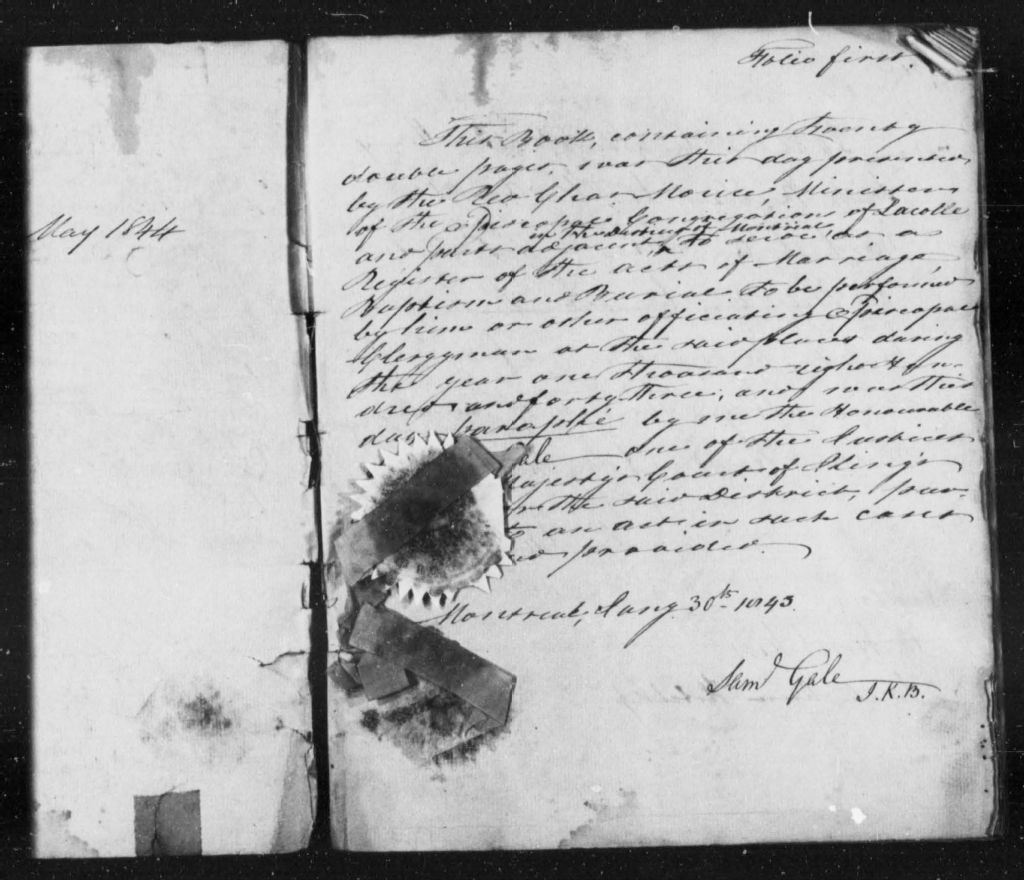 May 1844
Folio first.
This Book, containing twenty
double pages, was this day presented
by the Rev Chas. Morice, Minister
of the Episcopal Congregations of Lacolle
in the District of Montreal
and parts adjacent, to serve as a
Register of the acts of Marriage,
Baptism and Burial to be performed
by him or other officiating Episcopal
Clergyman at the said places during
the year one thousand eight Hun-
dred and forty three, and was this
day paraphé by me the Honourable
Gale one of the Justices
Majesty's Court of King's
the said District, pur-
to an act in such cases
provided.
Montreal, Jany 30th 1843.
Saml Gale
J.K.B.